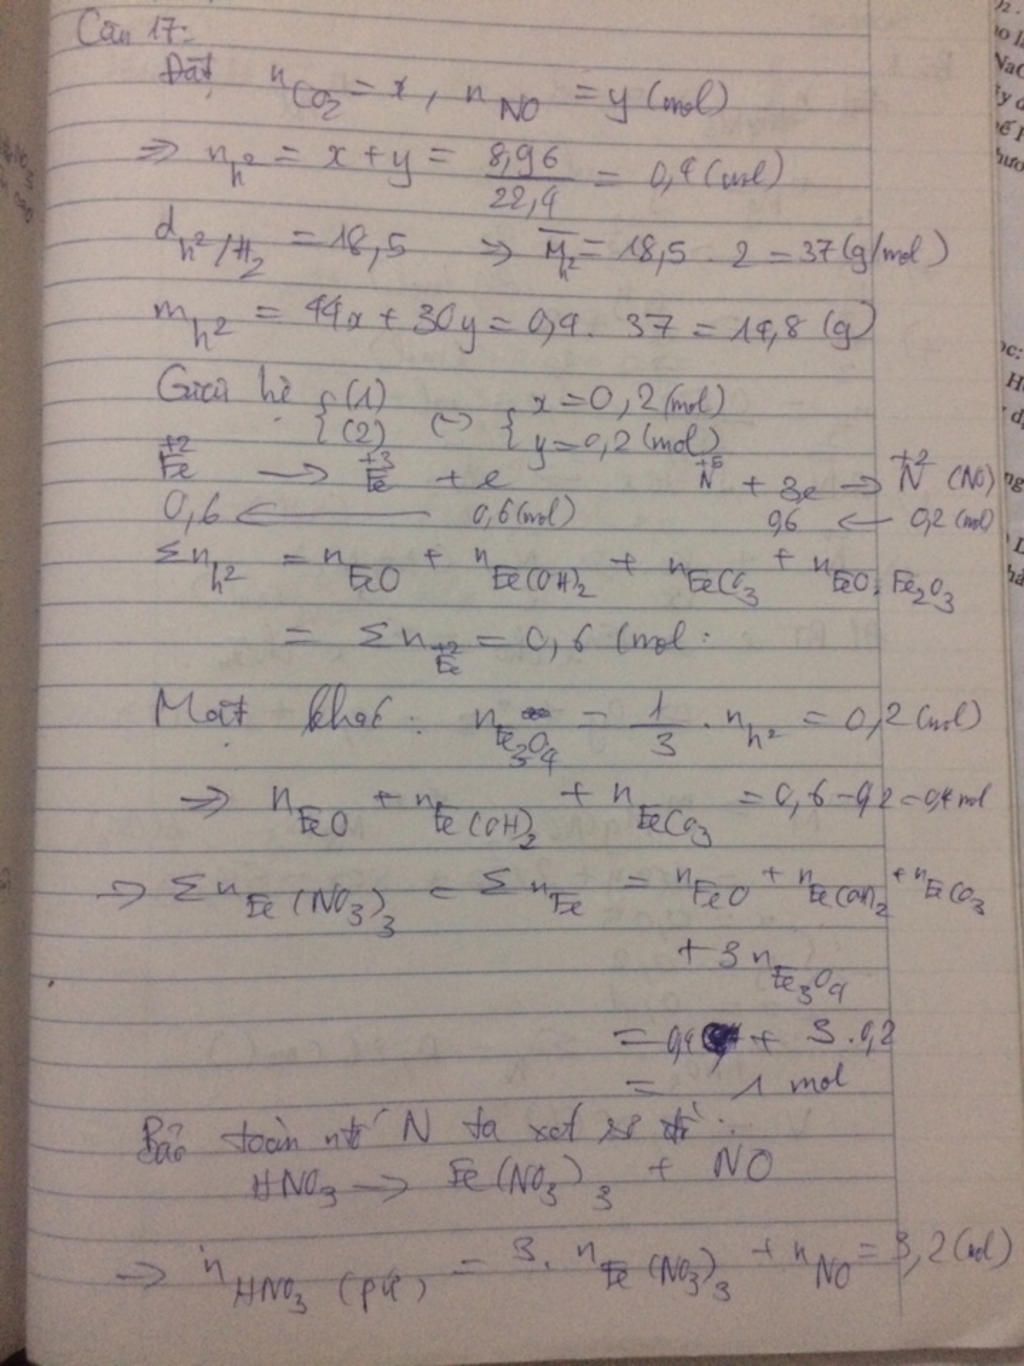 Câu 17:
Đặt n CO2 = x, n NO = y (mol)
=> n h2 = x + y = 8,96 / 22,4 = 0,4 (mol)
d h2/H2 = 18,5 => M h2 = 18,5 . 2 = 37 (g/mol)
m h2 = 44x + 30y = 0,4 . 37 = 14,8 (g)
Giải hệ { (1) (2) <-> { x = 0,2 (mol) y = 0,2 (mol)
+2 Fe -> +3 Fe + e +5 N + 3e -> +2 N (NO)
0,6 <- 0,6 (mol) 0,6 <- 0,2 (mol)
Σn h2 = n FeO + n Fe(OH)2 + n FeCO3 + n FeO.Fe2O3
= Σn +2 Fe = 0,6 (mol.
Mặt khác: n Fe3O4 = 1/3 . n h2 = 0,2 (mol)
=> n FeO + n Fe(OH)2 + n FeCO3 = 0,6 - 0,2 = 0,4 mol
=> Σn Fe(NO3)3 = Σn Fe = n FeO + n Fe(OH)2 + n FeCO3
+ 3n Fe3O4
= 0,4 + 3 . 0,2
= 1 mol
Bảo toàn ntố N ta xét sơ đồ:
HNO3 -> Fe(NO3)3 + NO
=> n HNO3 (pứ) = 3. n Fe(NO3)3 + n NO = 3,2 (mol)